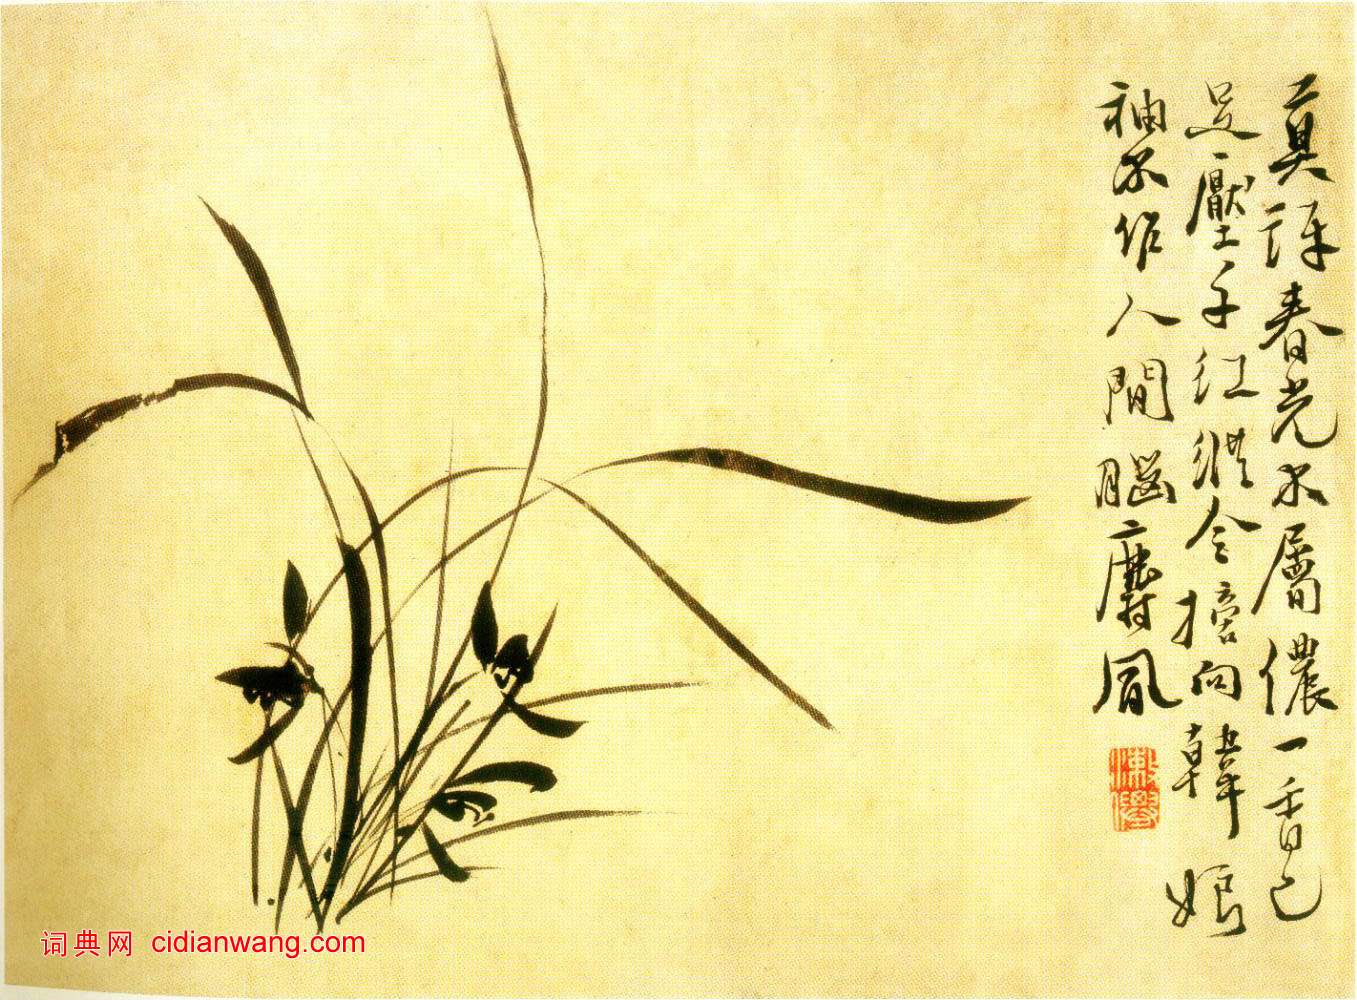 莫訝春光不屬儂一香已
足壓千紅總令摘向韓娘
袖不作人間腦麝風
漱僊
词典网 cidianwang.com